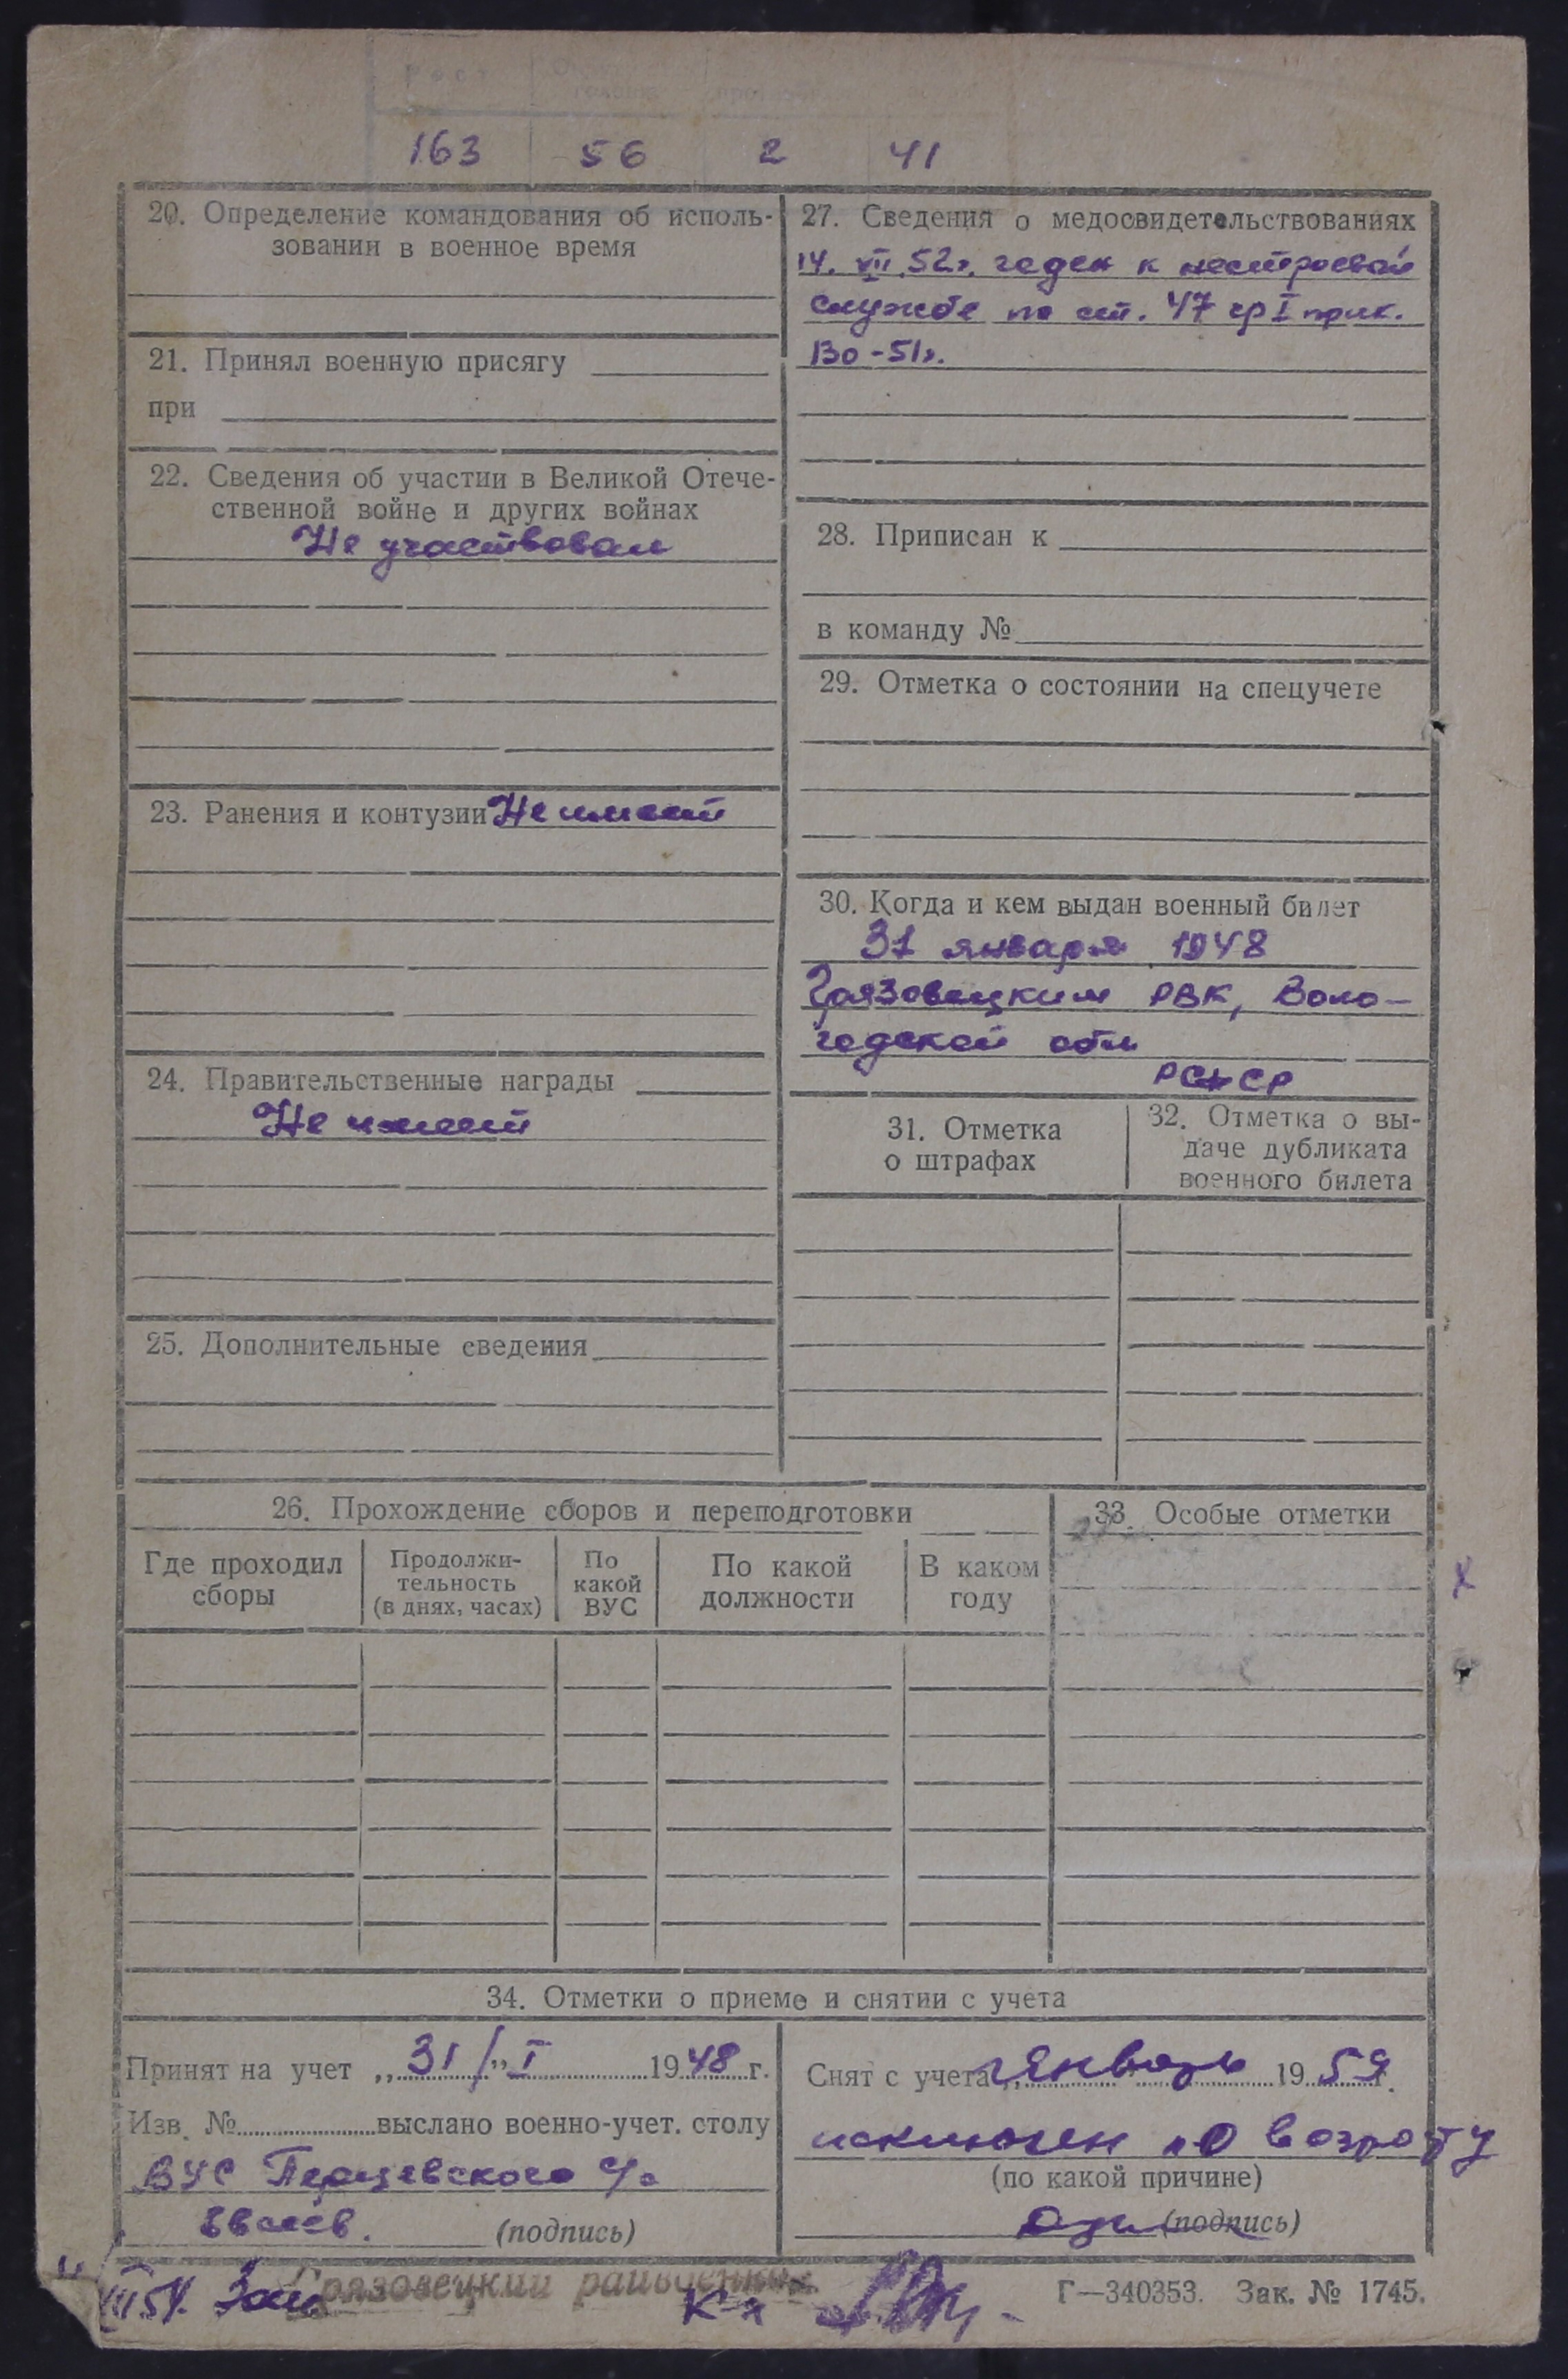 Рост
163 56 2 41
20. Определение командования об исполь-
зовании в военное время
21. Принял военную присягу
при
22. Сведения об участии в Великой Отече-
ственной войне и других войнах
Не участвовал
23. Ранения и контузии Не имеет
24. Правительственные награды
Не имеет
25. Дополнительные сведения
27. Сведения о медосвидетельствованиях
14. VII 52г. годен к нестроевой
службе по ст. 47 гр I прик.
130-51г.
28. Приписан к
в команду №
29. Отметка о состоянии на спецучете
30. Когда и кем выдан военный билет
31 января 1948
Грязовецким РВК, Воло-
годской обл
РСФСР
31. Отметка
о штрафах
32. Отметка о вы-
даче дубликата
военного билета
26. Прохождение сборов и переподготовки
Где проходил
сборы
Продолжи-
тельность
(в днях, часах)
По
какой
ВУС
По какой
должности
В каком
году
33. Особые отметки
34. Отметки о приеме и снятии с учета
Принят на учет „31/" I 1948 г.
Изв. № выслано военно-учет. столу
ВУС Перцевского с/с
(подпись)
Снят с учета „ январь 1959 г.
исключен по возрасту
(по какой причине)
(подпись)
Грязовецкий
Г—340353. Зак. № 1745.